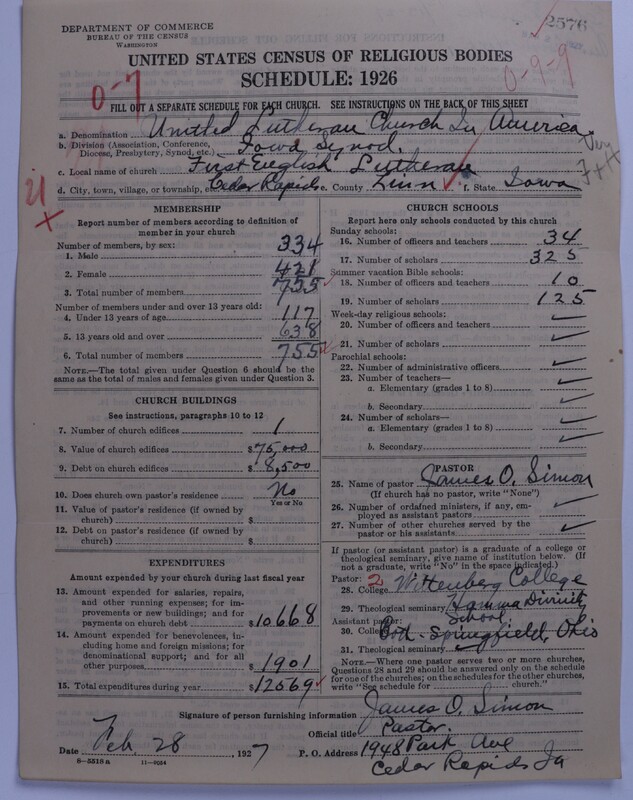 DEPARTMENT OF COMMERCE
BUREAU OF THE CENSUS
WASHINGTON
2576
UNITED STATES CENSUS OF RELIGIOUS BODIES
SCHEDULE: 1926
0-7
0-9-9
FILL OUT A SEPARATE SCHEDULE FOR EACH CHURCH. SEE INSTRUCTIONS ON THE BACK OF THIS SHEET
a. Denomination United Lutheran Church In America
b. Division (Association, Conference, Diocese, Presbytery, Synod, etc.) Iowa Synod.
c. Local name of church First English Lutheran
d. City, town, village, or township, etc. Cedar Rapids e. County Linn f. State Iowa
MEMBERSHIP
Report number of members according to definition of member in your church
Number of members, by sex:
1. Male 334
2. Female 421
3. Total number of members 755
Number of members under and over 13 years old:
4. Under 13 years of age 117
5. 13 years old and over 638
6. Total number of members 755
NOTE.—The total given under Question 6 should be the same as the total of males and females given under Question 3.
CHURCH BUILDINGS
See instructions, paragraphs 10 to 12
7. Number of church edifices 1
8. Value of church edifices $75,000
9. Debt on church edifices $8,500
10. Does church own pastor's residence No
Yes or No
11. Value of pastor's residence (if owned by church) $
12. Debt on pastor's residence (if owned by church) $
EXPENDITURES
Amount expended by your church during last fiscal year
13. Amount expended for salaries, repairs, and other running expenses; for improvements or new buildings; and for payments on church debt $10668
14. Amount expended for benevolences, including home and foreign missions; for denominational support; and for all other purposes $1901
15. Total expenditures during year $12569
CHURCH SCHOOLS
Report here only schools conducted by this church
Sunday schools:
16. Number of officers and teachers 34
17. Number of scholars 325
Summer vacation Bible schools:
18. Number of officers and teachers 10
19. Number of scholars 125
Week-day religious schools:
20. Number of officers and teachers
21. Number of scholars
Parochial schools:
22. Number of administrative officers
23. Number of teachers—
a. Elementary (grades 1 to 8)
b. Secondary
24. Number of scholars—
a. Elementary (grades 1 to 8)
b. Secondary
PASTOR
25. Name of pastor James O. Simon
(If church has no pastor, write "None")
26. Number of ordained ministers, if any, employed as assistant pastors
27. Number of other churches served by the pastor or his assistants
If pastor (or assistant pastor) is a graduate of a college or theological seminary, give name of institution below. (If not a graduate, write "No" in the space indicated.)
Pastor: 2
28. College Wittenberg College
29. Theological seminary Hamma Divinity School
Assistant pastor:
30. College Both - Springfield, Ohio
31. Theological seminary
NOTE.—Where one pastor serves two or more churches, Questions 28 and 29 should be answered only on the schedule for one of the churches; on the schedules for the other churches, write "See schedule for ........ church."
Signature of person furnishing information James O. Simon
Official title Pastor.
Date Feb. 28 1927 P. O. Address 1948 Park Ave
Cedar Rapids Ia
8—5518 a 11—9034